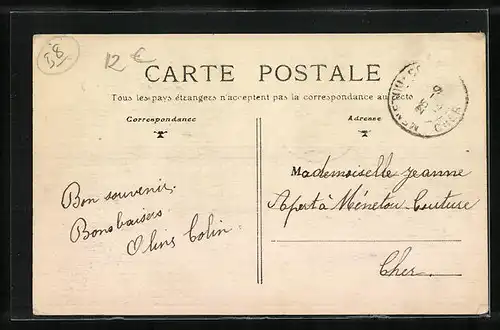 B8
12 €
CARTE POSTALE
Tous les pays étrangers n'acceptent pas la correspondance au recto
Correspondance
Adresse
Mademoiselle Jeanne
à Ménetou Couture
Cher
Bon souvenir
Bons baisers
Colin
CHER